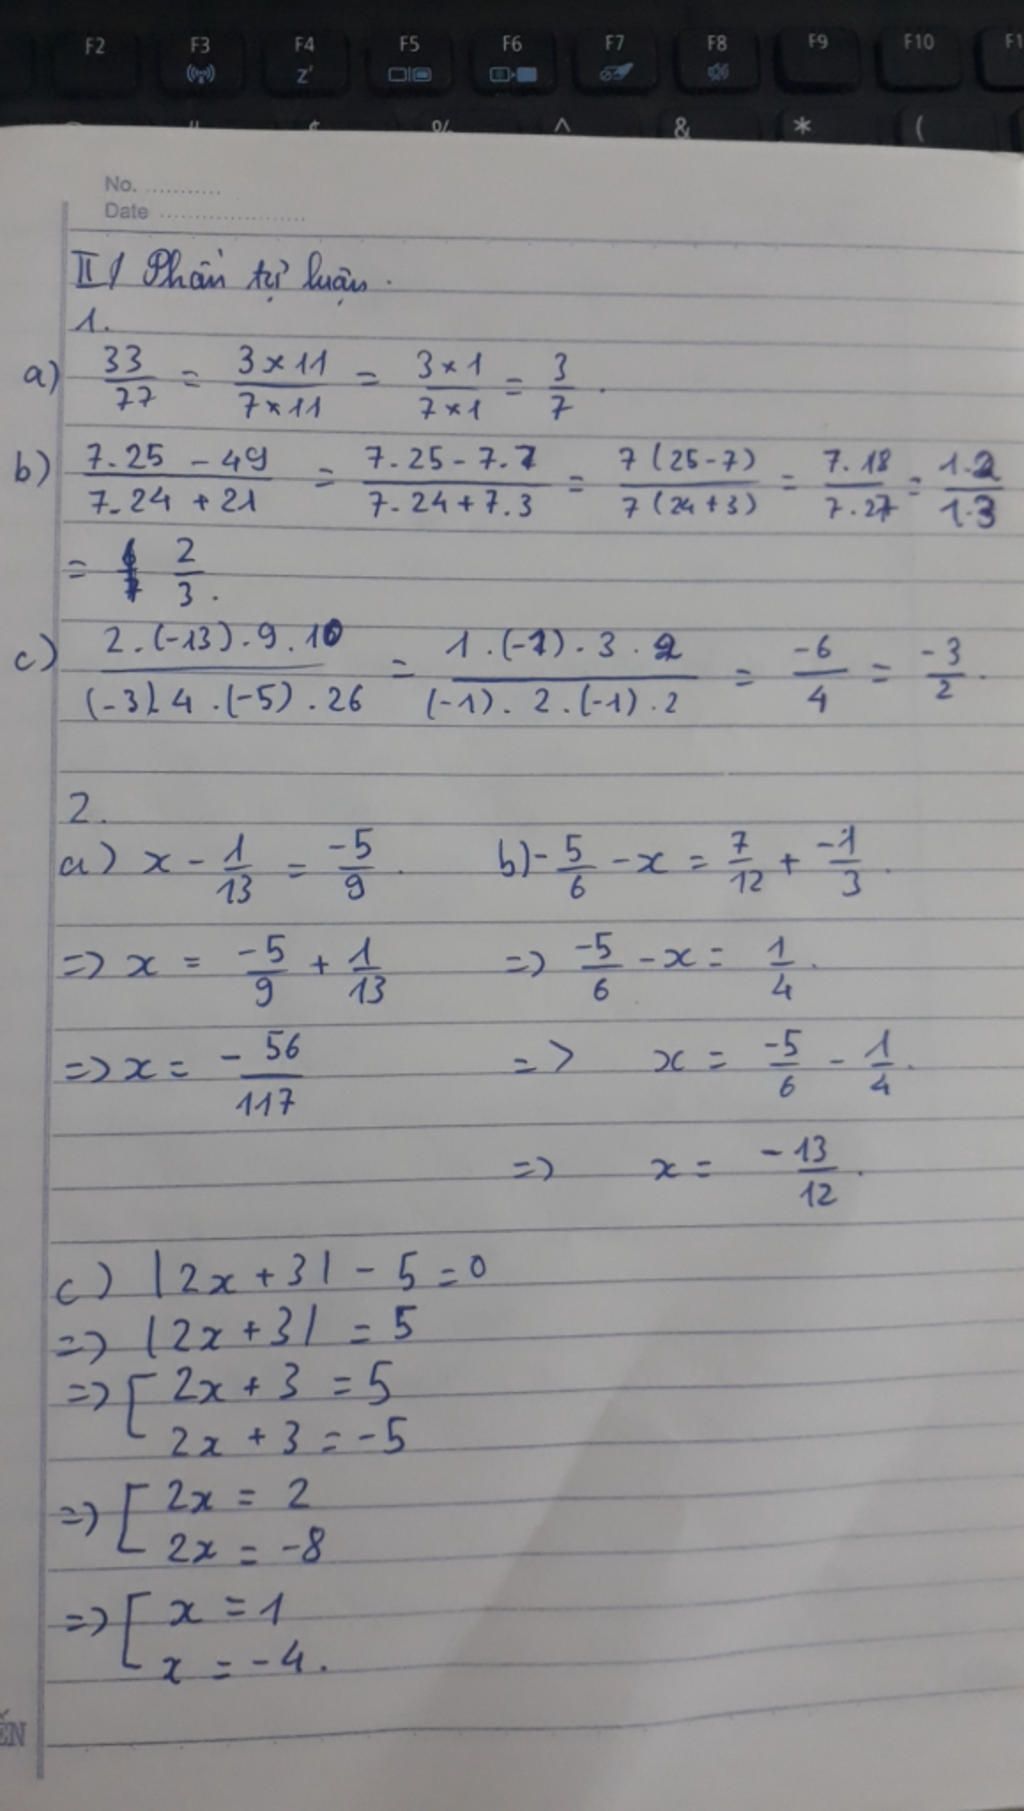 F2 F3 F4 F5 F6 F7 F8 F9 F10 F1
Z'
" $ % ^ & * (
No. ...........
Date .....................
II/ Phần tự luận.
1.
a) 33/77 = 3×11/7×11 = 3×1/7×1 = 3/7.
b) 7.25 - 49/7.24 + 21 = 7.25 - 7.7/7.24 + 7.3 = 7(25-7)/7(24+3) = 7.18/7.27 = 1.2/1.3
= 2/3.
c) 2.(-13).9.10/(-3).4.(-5).26 = 1.(-1).3.2/(-1).2.(-1).2 = -6/4 = -3/2.
2.
a) x - 1/13 = -5/9. b) -5/6 - x = 7/12 + -1/3.
=> x = -5/9 + 1/13 => -5/6 - x = 1/4.
=> x = -56/117 => x = -5/6 - 1/4.
=> x = -13/12.
c) |2x + 3| - 5 = 0
=> |2x + 3| = 5
=> [ 2x + 3 = 5
2x + 3 = -5
=> [ 2x = 2
2x = -8
=> [ x = 1
x = -4.